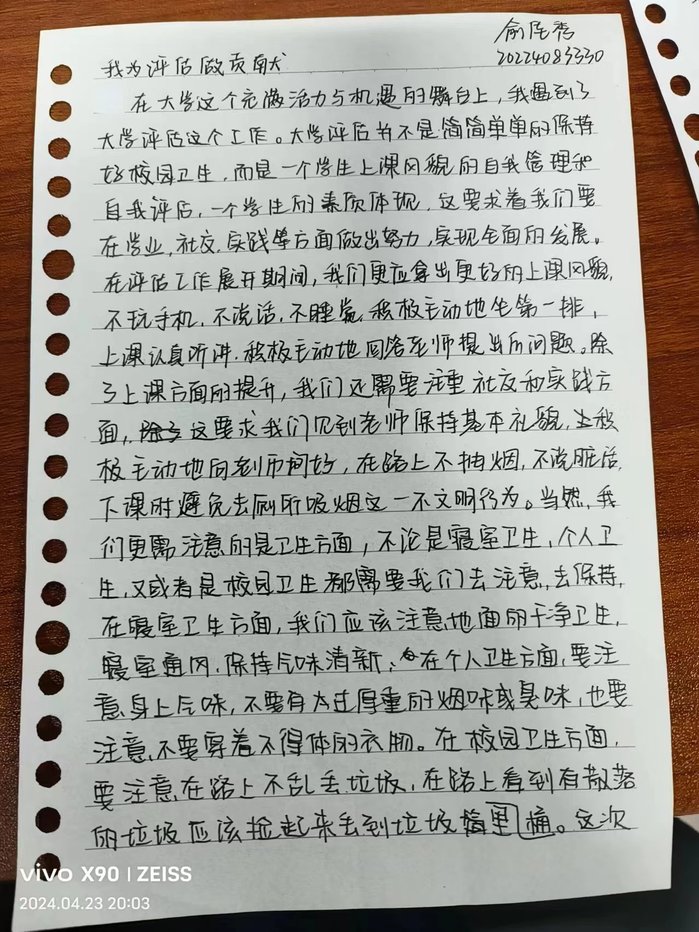 俞 秀
20224083330
我为评估做贡献
在大学这个充满活力与机遇的舞台上，我遇到了
大学评估这个工作。大学评估并不是简简单单的保持
好校园卫生，而是一个学生上课风貌的自我管理和
自我评估，一个学生的素质体现，这要求着我们要
在学业、社交、实践等方面做出努力，实现全面的发展。
在评估工作展开期间，我们更应拿出更好的上课风貌，
不玩手机，不说话，不睡觉，积极主动地坐第一排，
上课认真听讲，积极主动地回答老师提出所问题。除
了上课方面的提升，我们还需要注重社交和实践方
面，这要求我们见到老师保持基本礼貌，积
极主动地向老师问好，在路上不抽烟，不说脏话，
下课时避免去厕所吸烟这一不文明行为。当然，我
们更需注意的是卫生方面，不论是寝室卫生，个人卫
生，又或者是校园卫生都需要我们去注意，去保持，
在寝室卫生方面，我们应该注意地面的干净卫生，
寝室通风，保持气味清新，在个人卫生方面，要注
意身上气味，不要有太过厚重的烟味或臭味，也要
注意不要穿着不得体的衣物。在校园卫生方面，
要注意在路上不乱丢垃圾，在路上看到有散落
的垃圾应该捡起来丢到垃圾桶里。这次
vivo X90 | ZEISS
2024.04.23 20:03